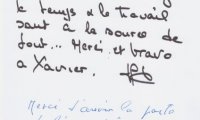 le temps & le travail
sont à la source de
tout... Merci et bravo
à Xavier.
Merci d'avoir la porte